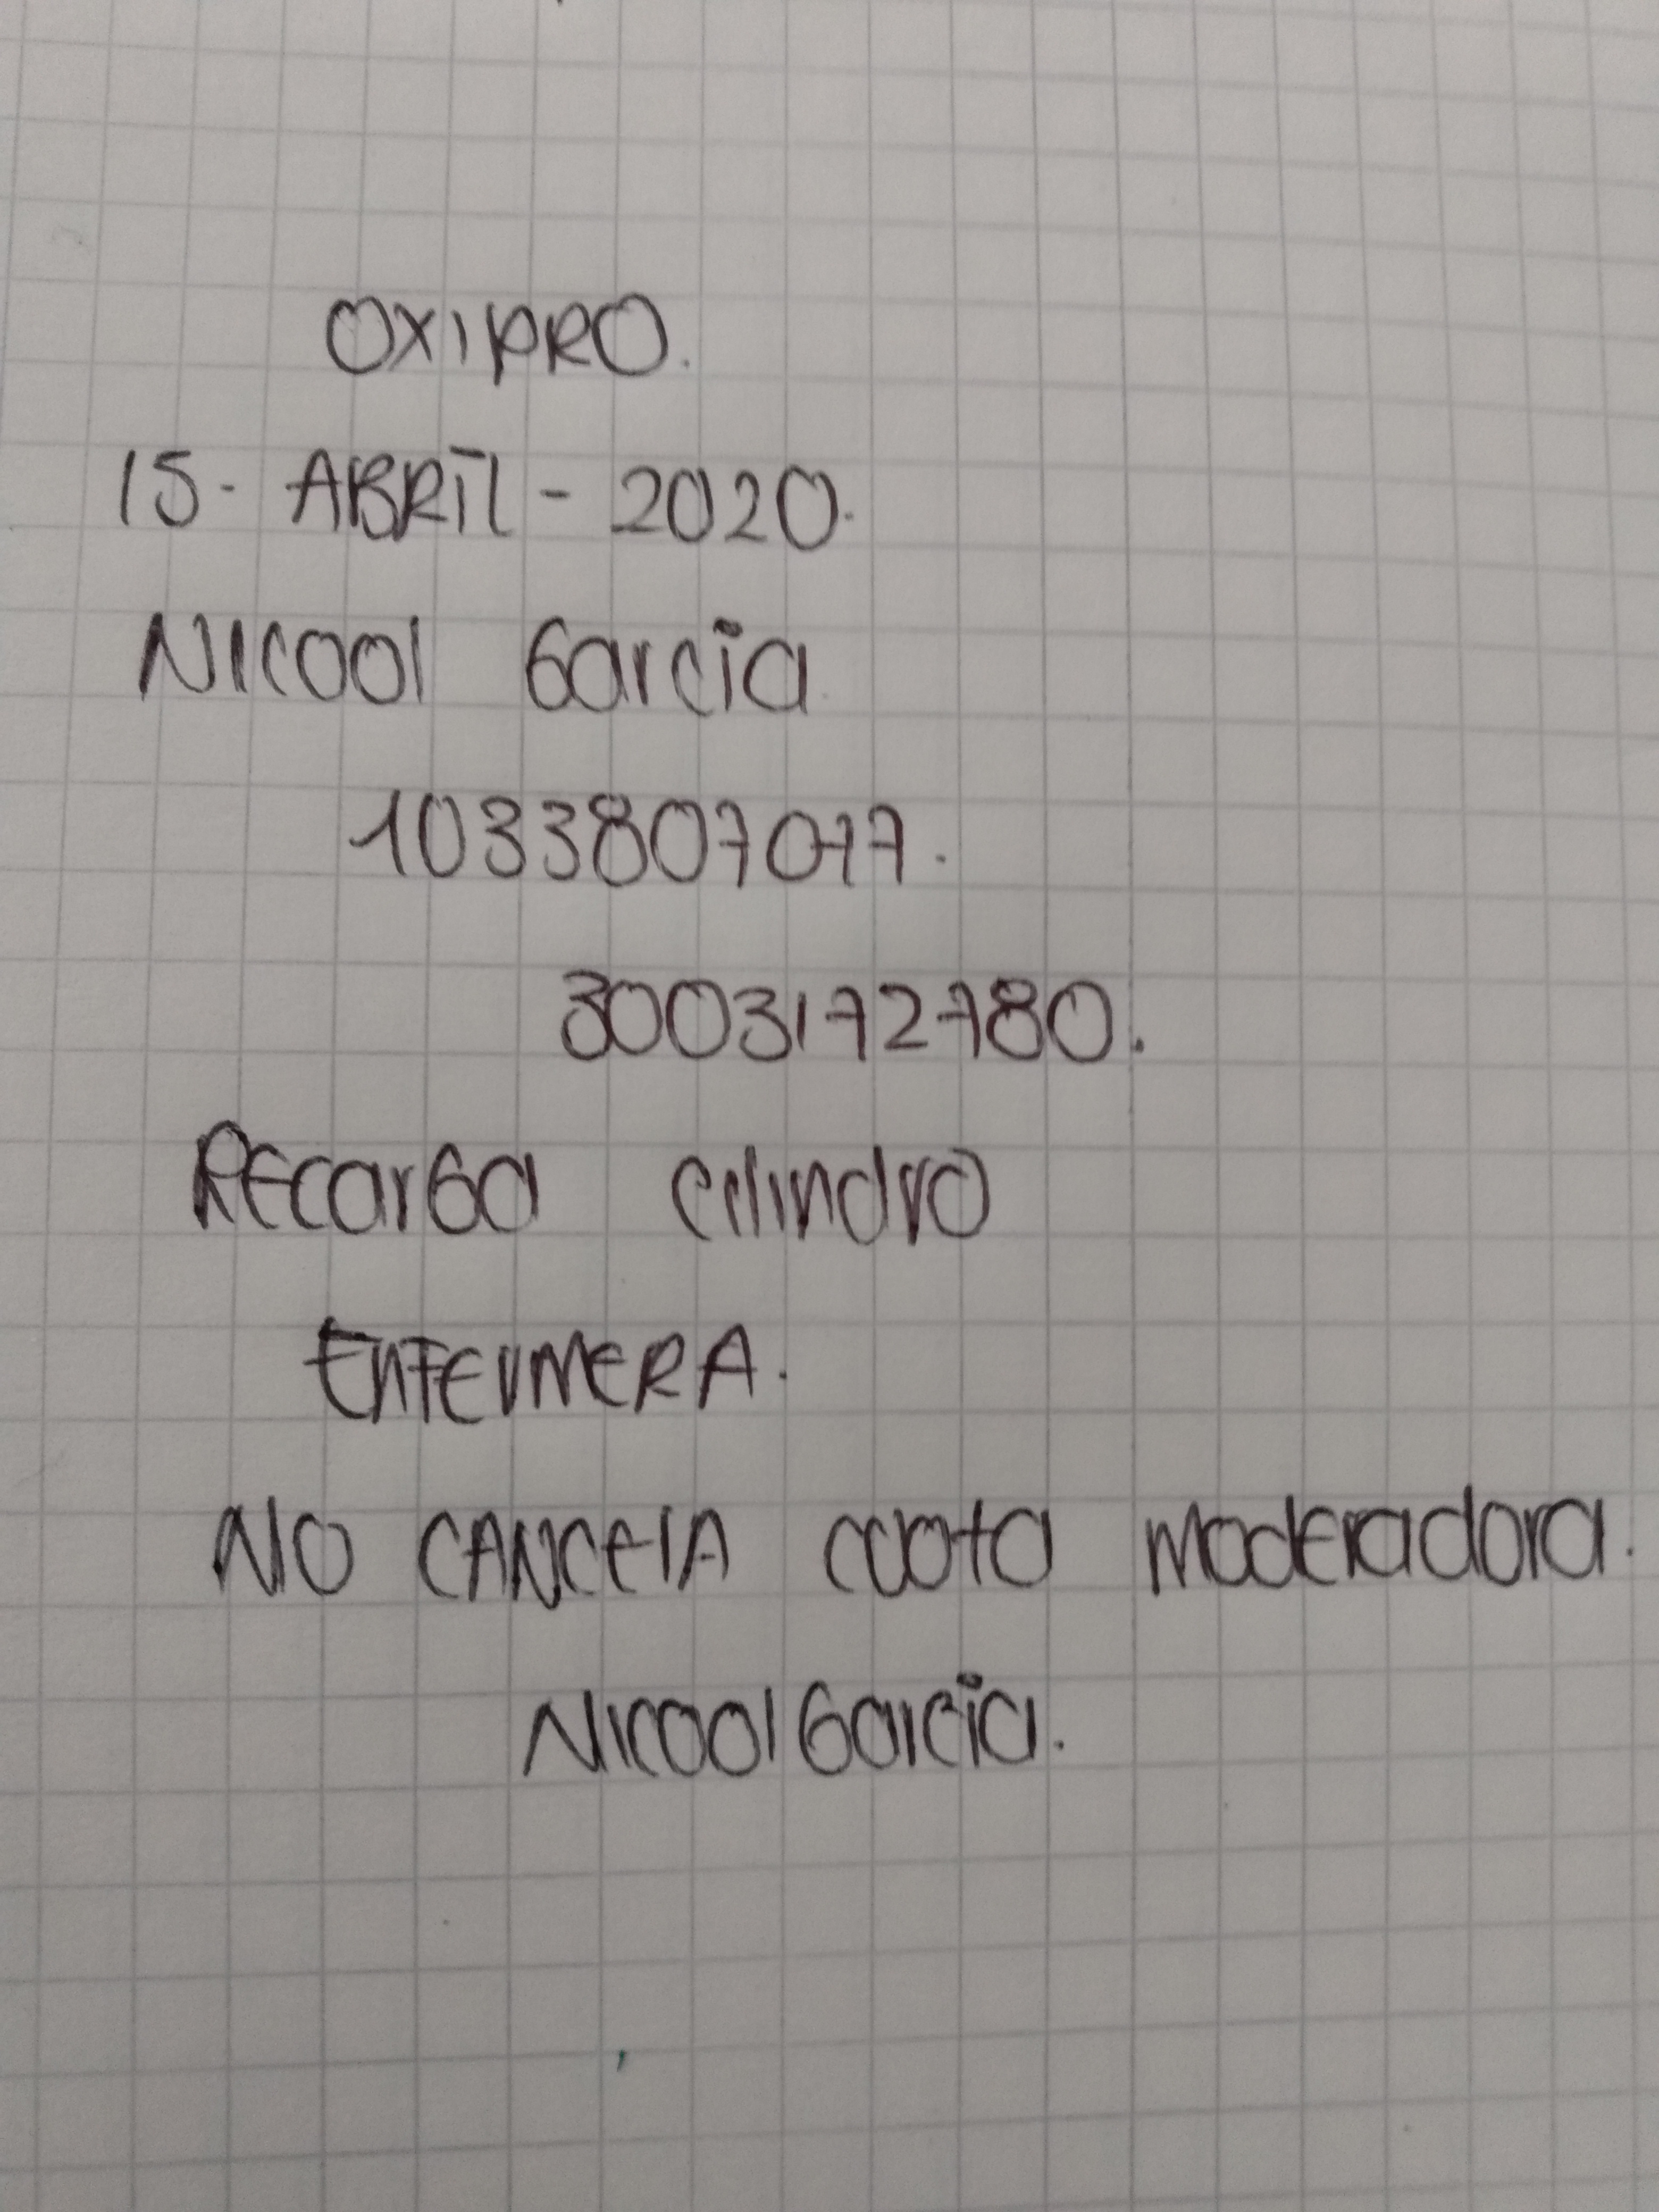 OXIPRO.
15- ABRIL - 2020.
NICOOl Garcia
1033807077.
3003172780.
REcarGa cilindro
ENFErMERA.
NO CANCElA cuota moderadora.
Nicool Garcia.